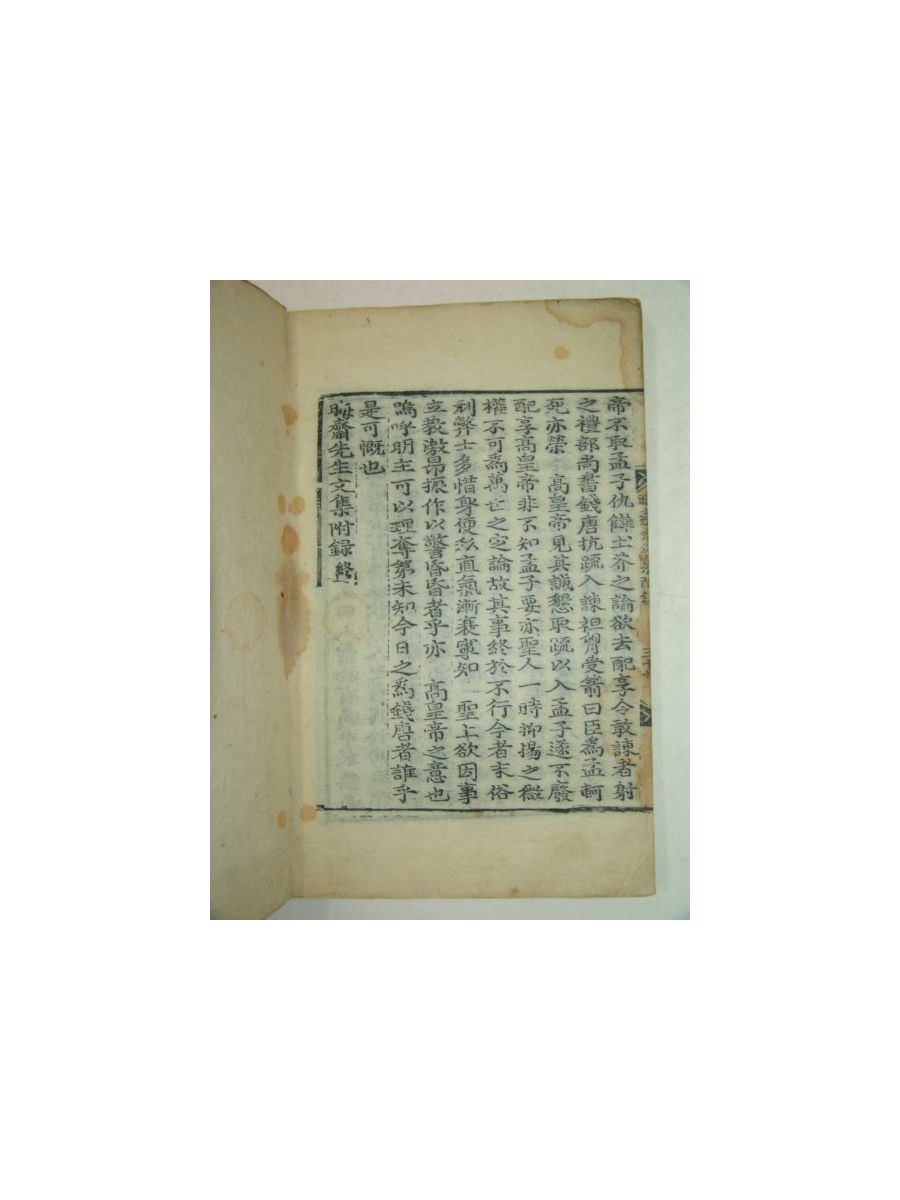 帝不取孟子仇讎土芥之論欲去配享令敢諫者射
之禮部尚書錢唐抗疏入諫袒胷受箭曰臣爲孟軻
死亦榮 高皇帝見其誠懇取疏以入孟子遂不廢
配享高皇帝非不知孟子要亦聖人一時抑揚之微
權不可爲萬亡之定論故其事終於不行今者末俗
利弊士多惜身便私直氣漸衰寧知 聖上欲因事
立敎激昻振作以警昏昏者乎亦 高皇帝之意也
嗚呼明主可以理奪第未知今日之爲錢唐者誰乎
是可慨也
晦齋先生文集附録終